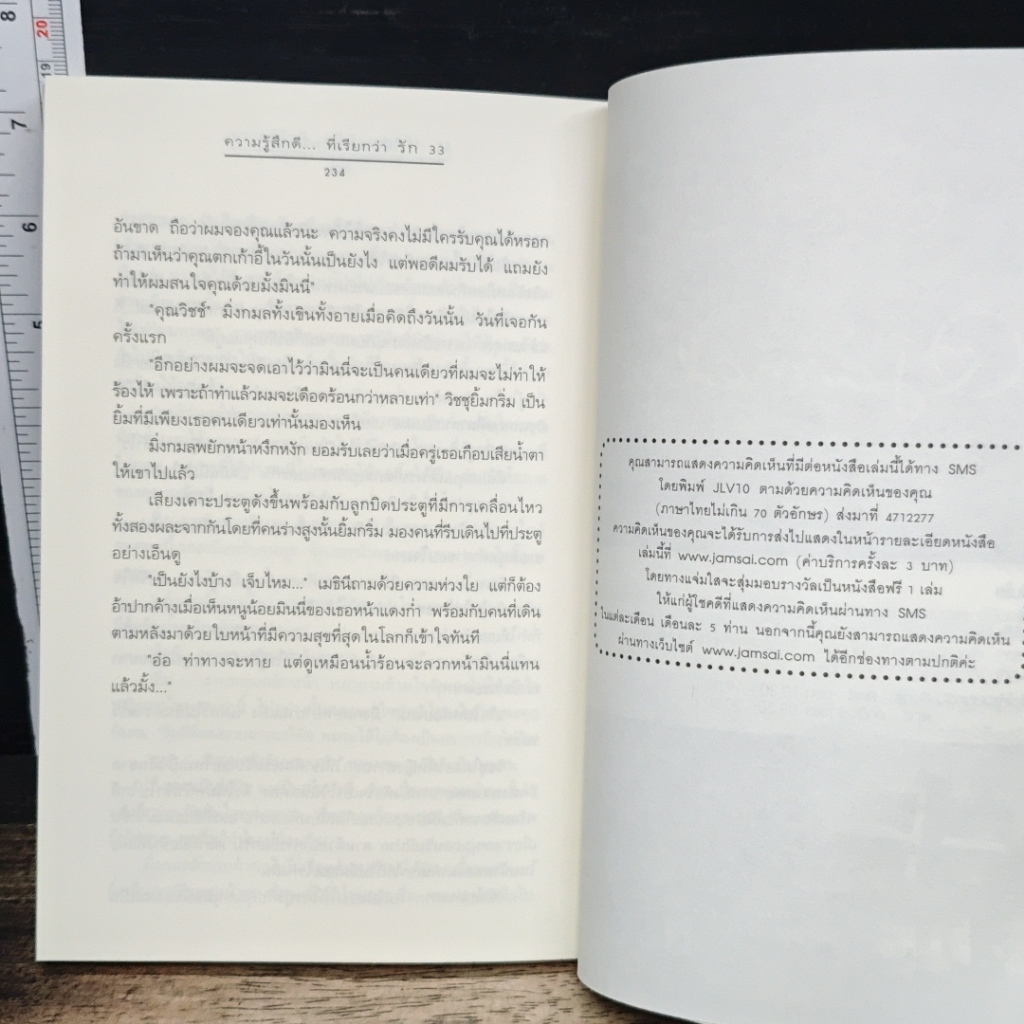 8
20
19
7
6
5
ความรู้สึกดี... ที่เรียกว่า รัก 33
234
อันขาด ถือว่าผมจองคุณแล้วนะ ความจริงคงไม่มีใครรับคุณได้หรอก
ถ้ามาเห็นว่าคุณตกเก้าอี้ในวันนั้นเป็นยังไง แต่พอดีผมรับได้ แถมยัง
ทำให้ผมสนใจคุณด้วยมั้งมินนี่"
"คุณวิชช์" มิ่งกมลทั้งเขินทั้งอายเมื่อคิดถึงวันนั้น วันที่เจอกัน
ครั้งแรก
"อีกอย่างผมจะจดเอาไว้ว่ามินนี่จะเป็นคนเดียวที่ผมจะไม่ทำให้
ร้องไห้ เพราะถ้าทำแล้วผมจะเดือดร้อนกว่าหลายเท่า" วิชชุยิ้มกริ่ม เป็น
ยิ้มที่มีเพียงเธอคนเดียวเท่านั้นมองเห็น
มิ่งกมลพยักหน้าหงึกหงัก ยอมรับเลยว่าเมื่อครู่เธอเกือบเสียน้ำตา
ให้เขาไปแล้ว
เสียงเคาะประตูดังขึ้นพร้อมกับลูกบิดประตูที่มีการเคลื่อนไหว
ทั้งสองผละจากกันโดยที่คนร่างสูงนั้นยิ้มกริ่ม มองคนที่รีบเดินไปที่ประตู
อย่างเอ็นดู
"เป็นยังไงบ้าง เจ็บไหม..." เมธินีถามด้วยความห่วงใย แต่ก็ต้อง
อ้าปากค้างเมื่อเห็นหนูน้อยมินนี่ของเธอหน้าแดงก่ำ พร้อมกับคนที่เดิน
ตามหลังมาด้วยใบหน้าที่มีความสุขที่สุดในโลกก็เข้าใจทันที
"อ๋อ ท่าทางจะหาย แต่ดูเหมือนน้ำร้อนจะลวกหน้ามินนี่แทน
แล้วมั้ง..."
คุณสามารถแสดงความคิดเห็นที่มีต่อหนังสือเล่มนี้ได้ทาง SMS
โดยพิมพ์ JLV10 ตามด้วยความคิดเห็นของคุณ
(ภาษาไทยไม่เกิน 70 ตัวอักษร) ส่งมาที่ 4712277
ความคิดเห็นของคุณจะได้รับการส่งไปแสดงในหน้ารายละเอียดหนังสือ
เล่มนี้ที่ www.jamsai.com (ค่าบริการครั้งละ 3 บาท)
โดยทางแจ่มใสจะสุ่มมอบรางวัลเป็นหนังสือฟรี 1 เล่ม
ให้แก่ผู้โชคดีที่แสดงความคิดเห็นผ่านทาง SMS
ในแต่ละเดือน เดือนละ 5 ท่าน นอกจากนี้คุณยังสามารถแสดงความคิดเห็น
ผ่านทางเว็บไซต์ www.jamsai.com ได้อีกช่องทางตามปกติค่ะ